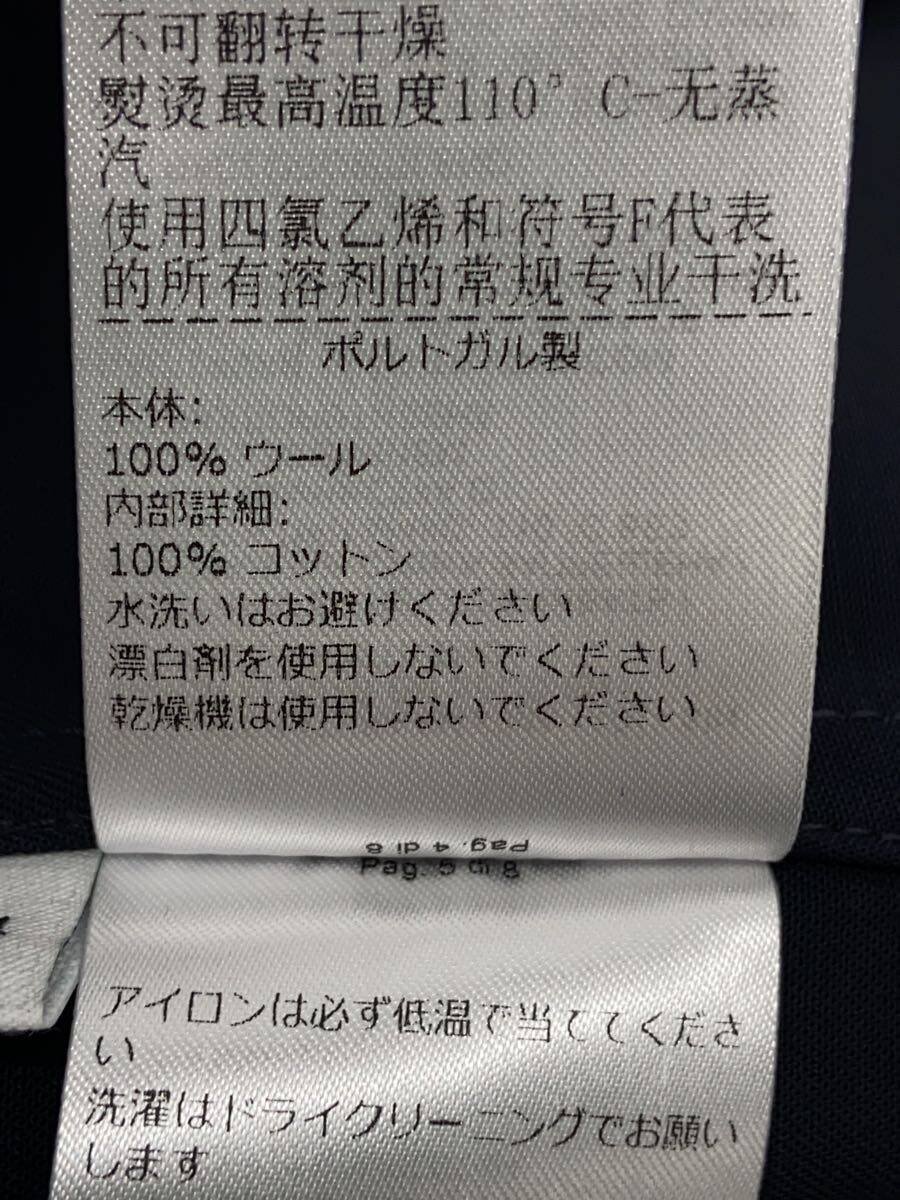 不可翻转干燥
熨烫最高温度110°C-无蒸
汽
使用四氯乙烯和符号F代表
的所有溶剂的常规专业干洗
ポルトガル製
本体:
100% ウール
内部詳細:
100% コットン
水洗いはお避けください
漂白剤を使用しないでください
乾燥機は使用しないでください
Pag. 4 di 8
Pag. 5 di 8
アイロンは必ず低温で当ててくださ
い
洗濯はドライクリーニングでお願い
します